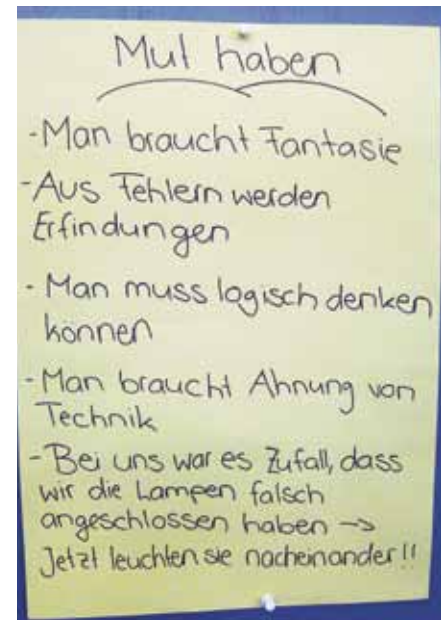 Mut haben
-Man braucht Fantasie
-Aus Fehlern werden
Erfindungen
- Man muss logisch denken
können
-Man braucht Ahnung von
Technik
-Bei uns war es Zufall, dass
wir die Lampen falsch
angeschlossen haben →
Jetzt leuchten sie nacheinander!!